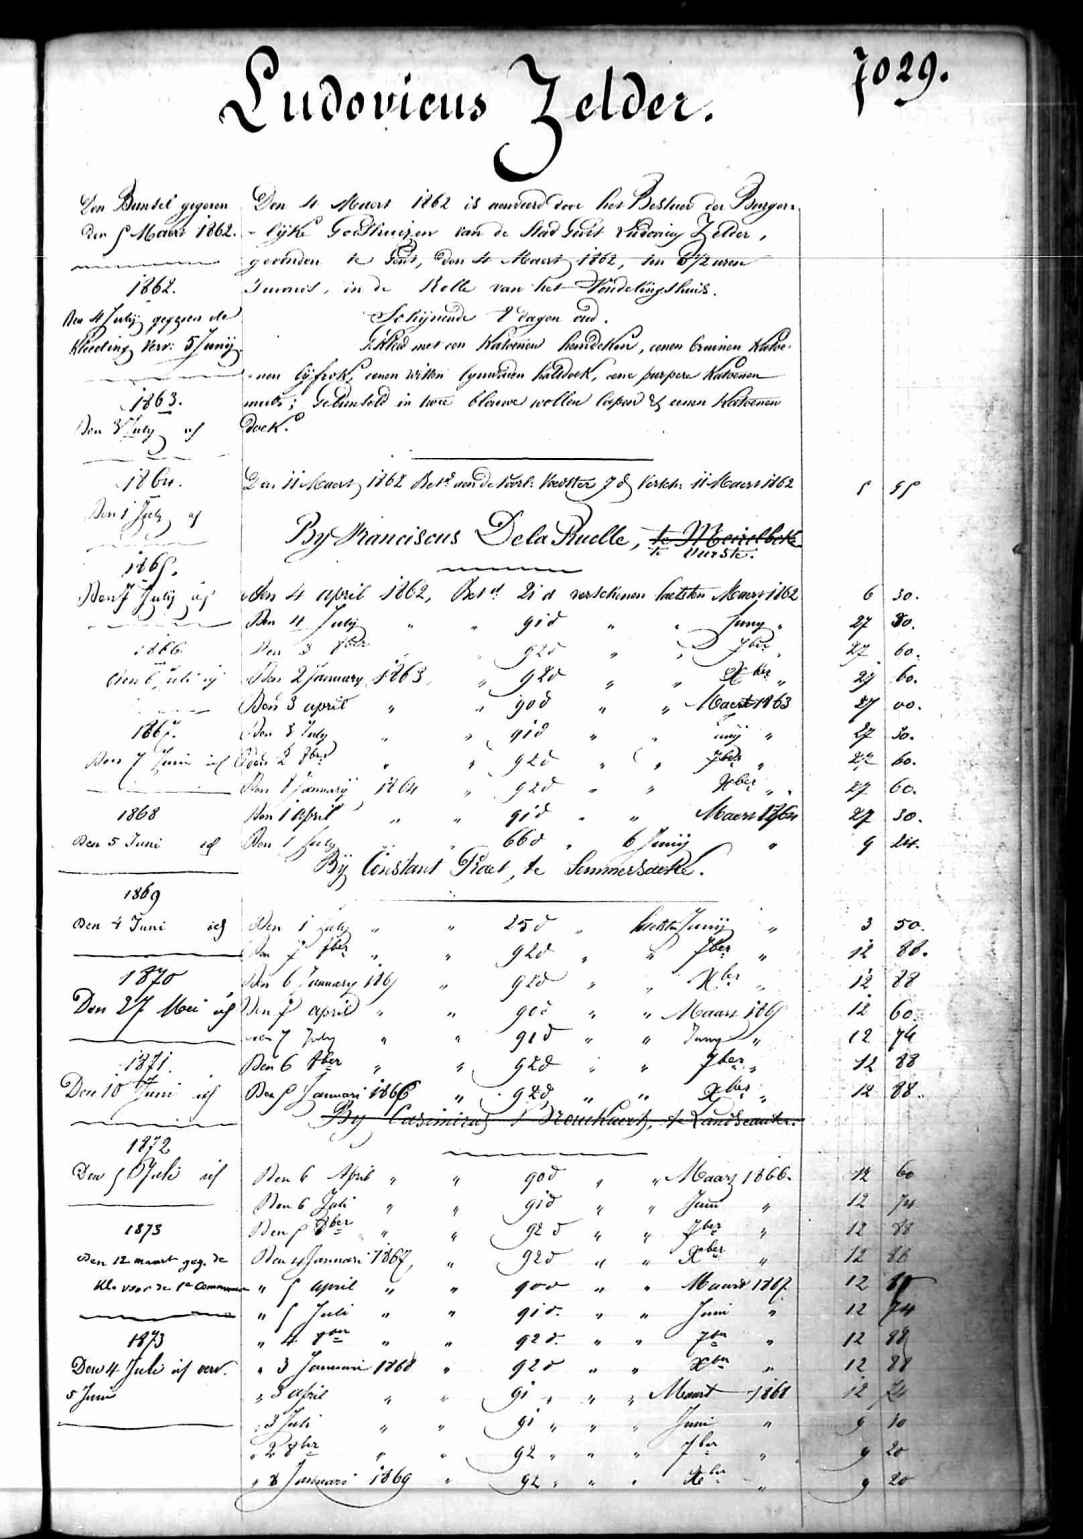 7029.
Ludovicus Zelder.
Den Bundel gegeven
Den 5 Maert 1862.
1862.
Den 4 Julij gegeven de
kleeding verv: 5 Junij
1863.
Den 3 July id
1864.
Den 1 July id
1865.
Den 7 Julij id
1866
1867.
Den 7 Juni id
1868
Den 5 Juni id
1869
Den 4 Juni id
1870
Den 27 Mei id
1871.
Den 10 Juni id
1872
Den 5 Juli id
1873
Den 12 maart geg. de
kl. voor de 1e Commun
1873
Den 4 Juli id verv.
5 Juni
Den 4 Maert 1862 is aenveerd door het Bestuer der Burger-
lijke Godshuizen van de Stad Gent Ludovicus Zelder,
gevonden te Gent, den 4 Maert 1862, ten 6 1/2 uren
'savonds, in de Rolle van het Vondelingshuis.
Schijnende 8 dagen oud.
Gekleed met een katoenen hemdeken, eenen bruinen katoe-
nen lijfrok, eenen witten lynwaden halsdoek, eene purpere katoenen
muts; Gebunseld in twee blauwe wollen lapen & eenen katoenen
doek.
Den 11 Maert 1862 Bet. aen de Voedster 7 d Versch. 11 Maert 1862 5 55
By Franciscus De la Ruelle, te Meirelbeke
te Vurste.
Den 4 april 1862, Bet. 21 d verschenen laetsten Maert 1862 6 30.
Den 4 July " " 91 d " " Juny " 27 30.
Den 3 8ber " 92 d " " 7ber " 27 60.
Den 2 January 1863 " 92 d " " Xber " 27 60.
Den 3 april " " 90 d " " Maert 1863 27 00.
Den 3 July " " 91 d " " Junij " 27 30.
Den 2 8ber " " 92 d " " 7ber " 27 60.
Den 1 Januarij 1864 " 92 d " " Xber " 27 60.
Den 1 april " " 91 d " " Maert 1864 27 30.
Den 1 July " 66 d " 6 Junij " 9 24.
Bij Constant Praet, te Semmersaeke.
Den 1 July " " 25 d " laetsten Junij " 3 50.
Den 7 8ber " " 92 d " " 7ber " 12 88.
Den 6 January 1865 " 92 d " " Xber " 12 88
Den 7 april " " 90 d " " Maart 1865 12 60.
Den 7 July " " 91 d " " Juny " 12 74
Den 6 8ber " " 92 d " " 7ber " 12 88
Den 5 Januari 1866 " 92 d " " Xber " 12 88.
Den 6 April " " 90 d " " Maart 1866. 12 60
Den 6 Juli " " 91 d " " Juni " 12 74
Den 5 8ber " " 92 d " " 7ber " 12 88
Den 4 Januari 1867, " 92 d " " Xber " 12 88
" 5 april " " 90 d " " Maart 1867 12 60
" 5 Juli " " 91 d. " " Juni " 12 74
" 4 8ber " " 92 d. " " 7ber " 12 88
" 3 Januari 1868 " 92 d " " Xber " 12 88
" 3 april " " 91 " " " Maart 1868 12 74
" 3 Juli " " 91 " " " Juni " 9 10
" 2 8ber " " 92 " " " 7ber " 9 20
" 8 Januari 1869 " 92 " " " Xber " 9 20